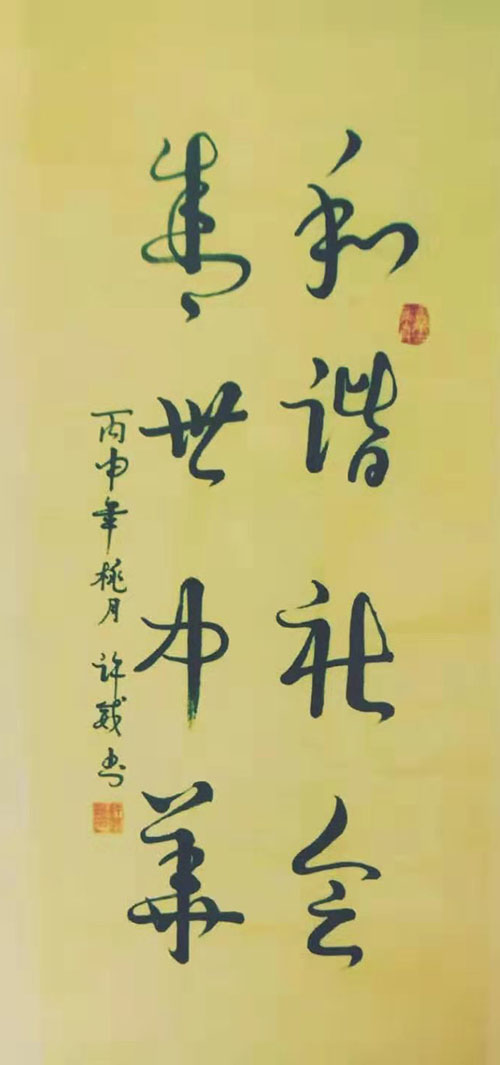 和谐社会
盛世中华
丙申年桃月 许威书